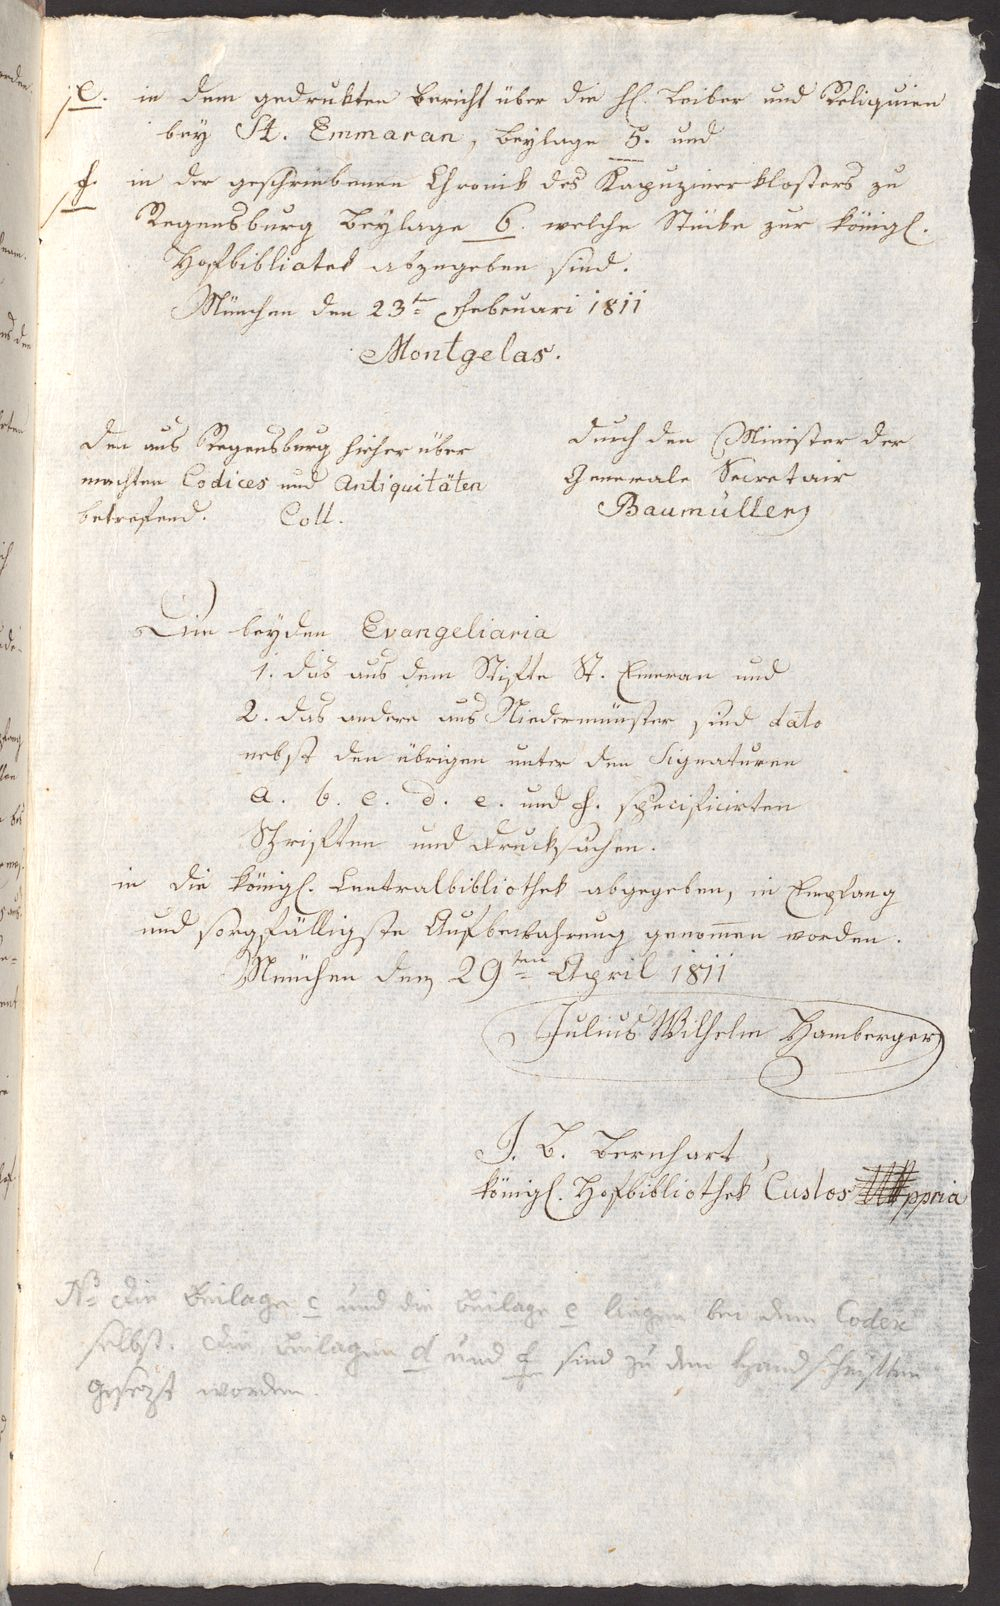 e. in dem gedrukten Bericht über die hl. Leiber und Reliquien
bey St. Emmaran, Beylage 5. und
f. in der geschriebenen Chronik des Kapuzinerklosters zu
Regensburg Beylage 6. welche Stücke zur königl.
Hofbibliotek abzugeben sind.
München den 23ten Februari 1811
Montgelas.
Den aus Regensburg hieher über
machten Codices und Antiquitäten
betrefend. Coll.
Durch den Minister der
Generale Secretair
Baumüller
Die beyden Evangeliaria
1. das aus dem Stifte St. Emeran und
2. das andere aus Niedermünster sind dato
nebst den übrigen unter den Signaturen
a. b. c. d. e. und f. specificirten
Schriften und Drucksachen.
in die königl. Centralbibliothek abgegeben, in Empfang
und sorgfälligste Aufbewahrung genom̄en worden.
München den 29ten April 1811
Julius Wilhelm Hamberger
J. B. Bernhart
königl. Hofbibliothek Custos ppria
NB Die Beilage c und die Beilage e liegen bei dem Codex
selbst. Die Beilagen d und f sind zu den Handschriften
gesezt worden.